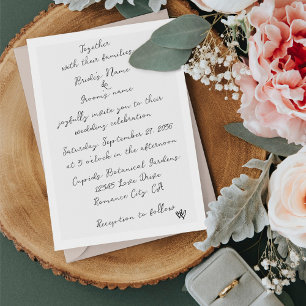 Together
with their families
Bride's Name
&
Groom's name
joyfully invite you to their
wedding celebration
Saturday, September 27, 2056
at 5 o'clock in the afternoon
Cupids Botanical Gardens
12345 Love Drive
Romance City, CA
Reception to follow